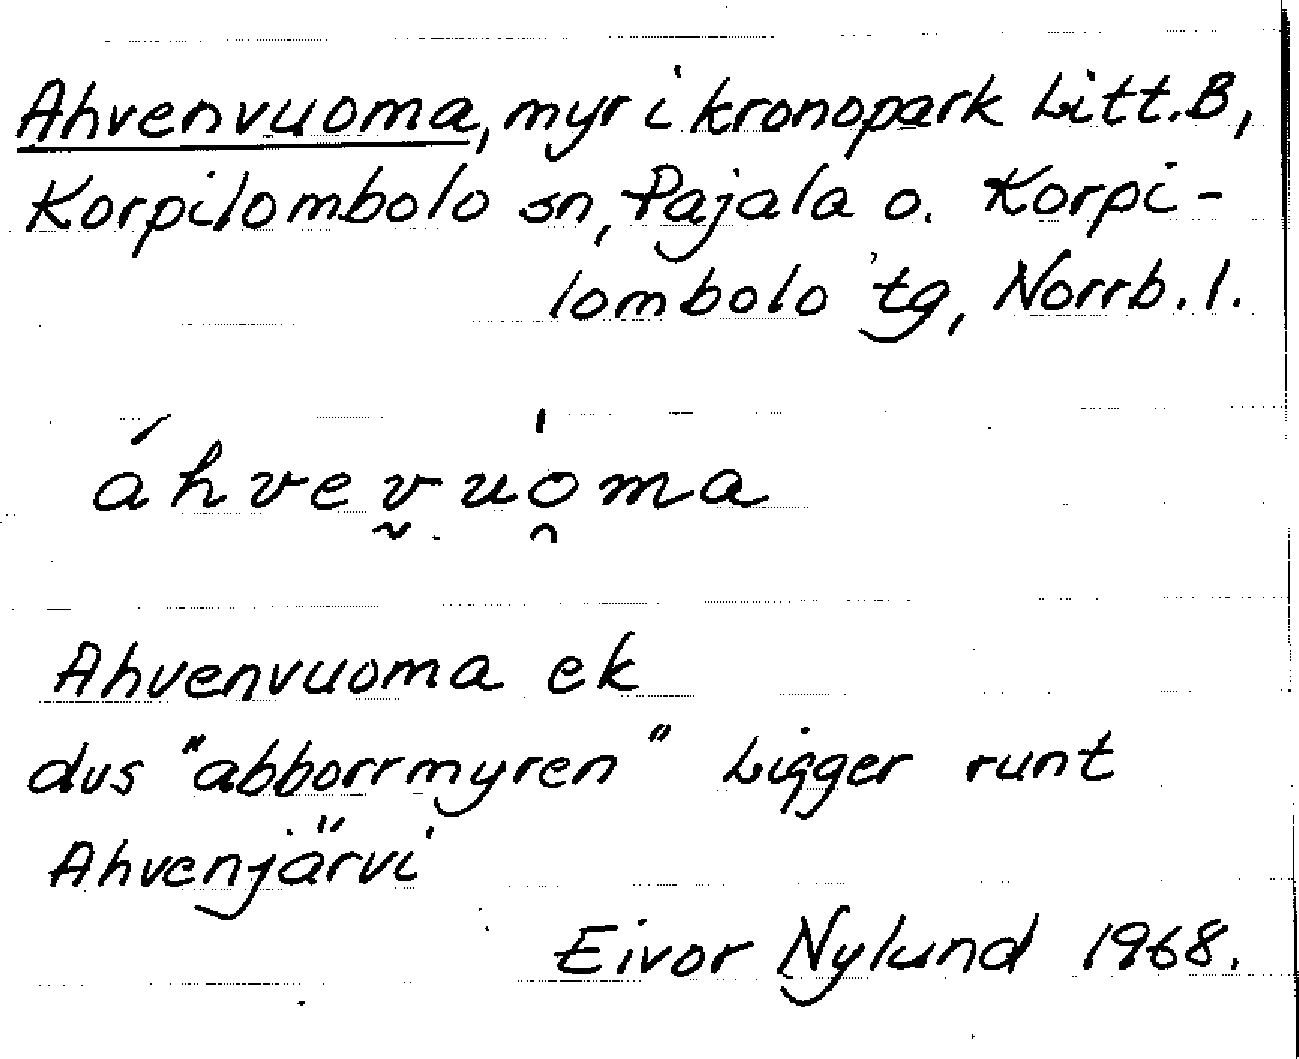 Ahvenvuoma, myr i kronopark Litt. B,
Korpilombolo sn, Pajala o. Korpi-
lombolo tg, Norrb. l.
áhvev̰uo̯̍ma
Ahvenvuoma ek
dvs "abborrmyren" Ligger runt
Ahvenjärvi
Eivor Nylund 1968.